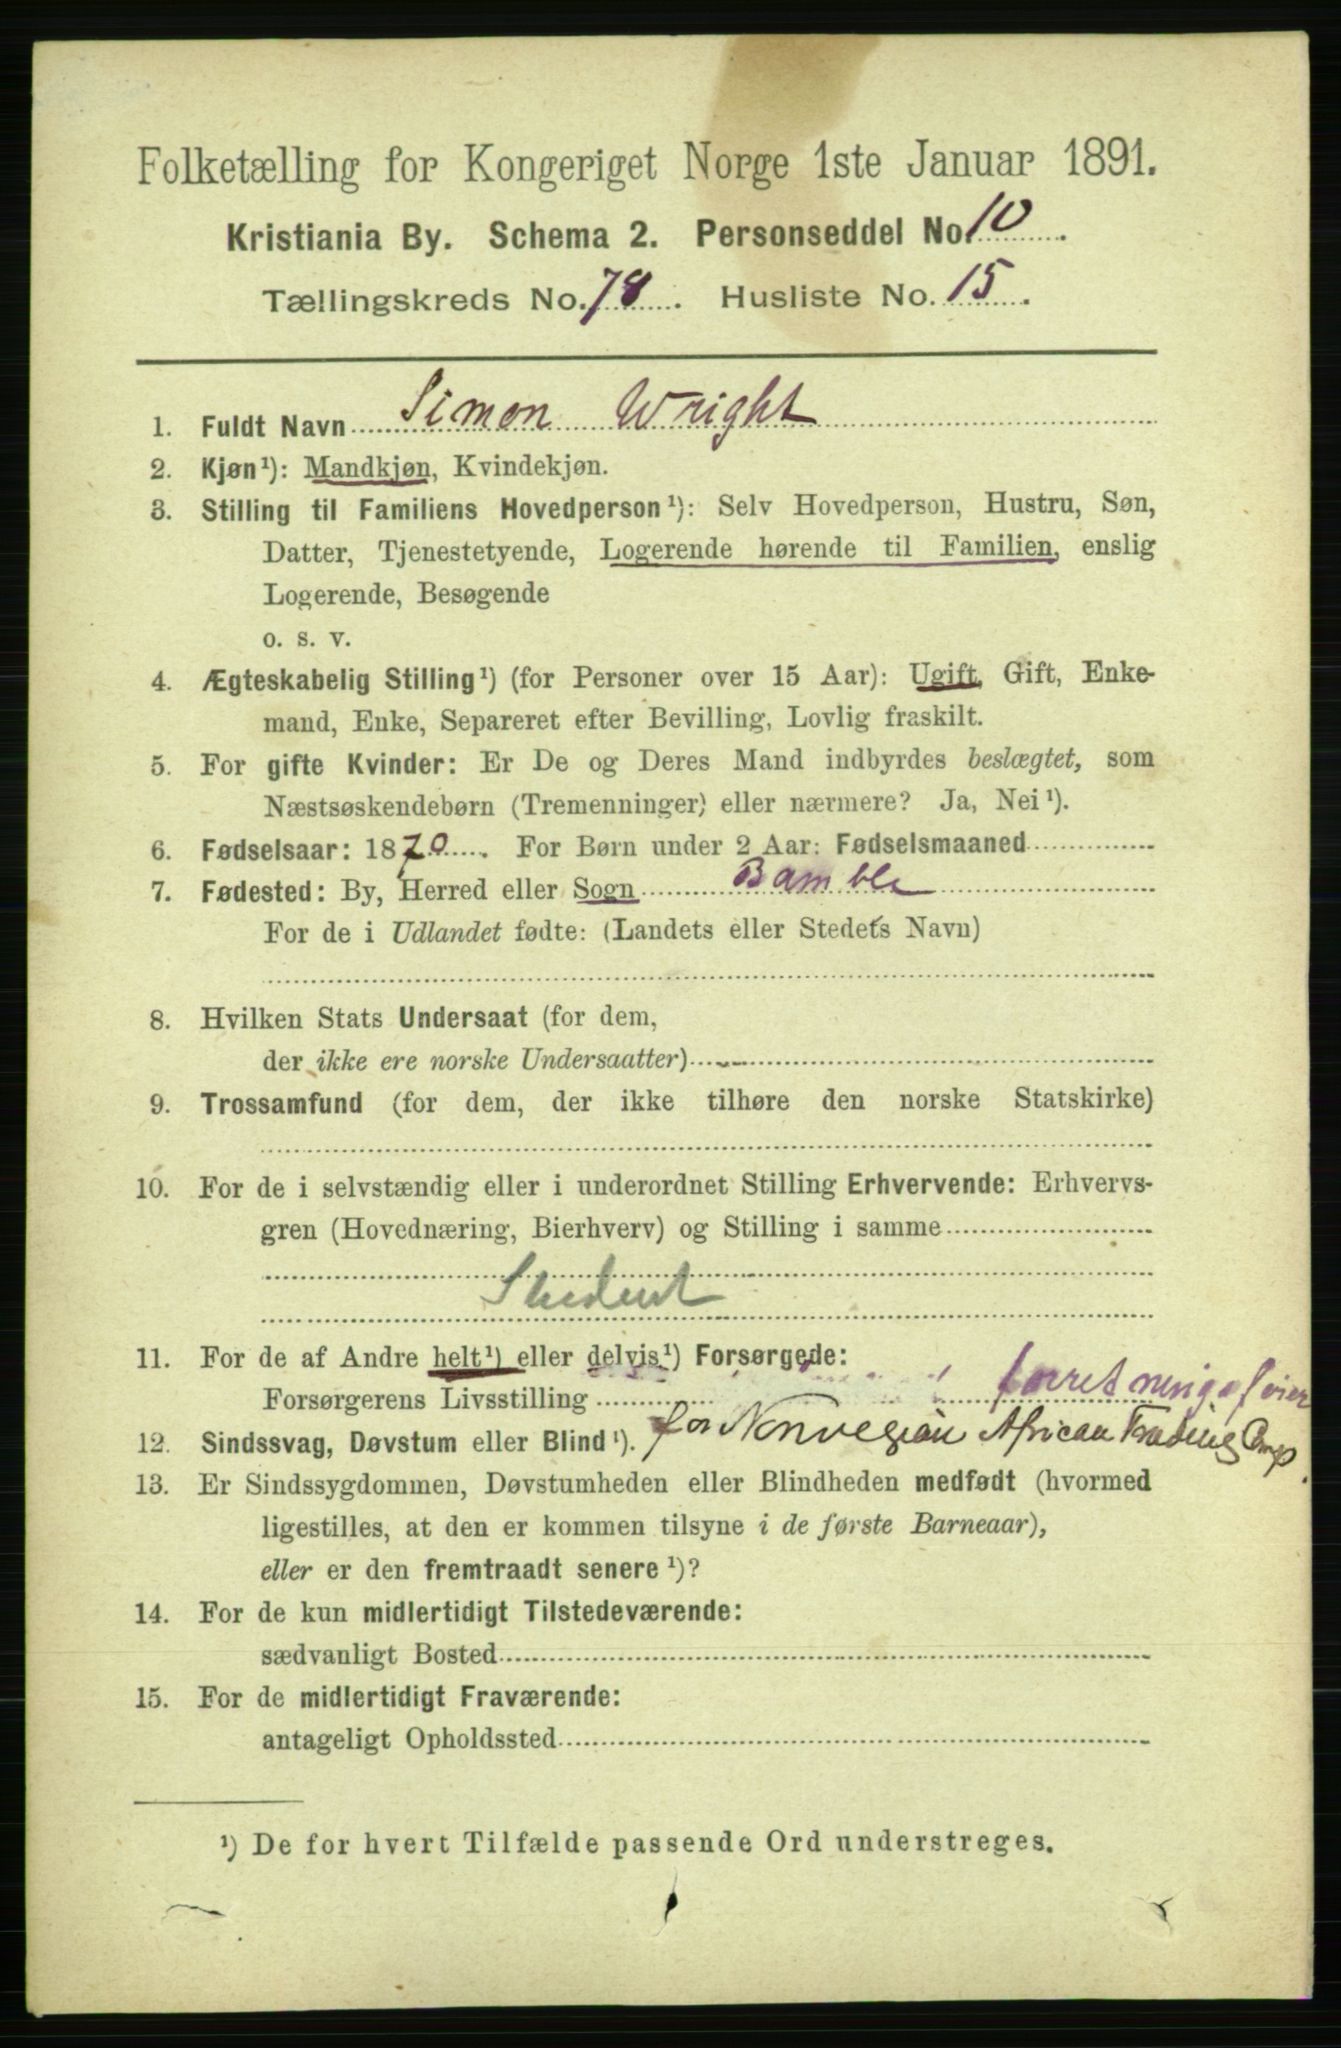 Folketælling for Kongeriget Norge 1ste Januar 1891.
Kristiania By. Schema 2. Personseddel No. 10.
Tællingskreds No. 78. Husliste No. 15.
1. Fuldt Navn Simon Wright
2. Kjøn¹): Mandkjøn, Kvindekjøn.
3. Stilling til Familiens Hovedperson¹): Selv Hovedperson, Hustru, Søn,
Datter, Tjenestetyende, Logerende hørende til Familien, enslig
Logerende, Besøgende
o. s. v.
4. Ægteskabelig Stilling¹) (for Personer over 15 Aar): Ugift, Gift, Enke-
mand, Enke, Separeret efter Bevilling, Lovlig fraskilt.
5. For gifte Kvinder: Er De og Deres Mand indbyrdes beslægtet, som
Næstsøskendebørn (Tremenninger) eller nærmere? Ja, Nei¹).
6. Fødselsaar: 1870. For Børn under 2 Aar: Fødselsmaaned
7. Fødested: By, Herred eller Sogn Bamble
For de i Udlandet fødte: (Landets eller Stedets Navn)
8. Hvilken Stats Undersaat (for dem,
der ikke ere norske Undersaatter)
9. Trossamfund (for dem, der ikke tilhøre den norske Statskirke)
10. For de i selvstændig eller i underordnet Stilling Erhvervende: Erhvervs-
gren (Hovednæring, Bierhverv) og Stilling i samme
Student
11. For de af Andre helt¹) eller delvis¹) Forsørgede:
Forsørgerens Livsstilling forretningsfører
for Norvegian African Trading Comp.
12. Sindssvag, Døvstum eller Blind¹).
13. Er Sindssygdommen, Døvstumheden eller Blindheden medfødt (hvormed
ligestilles, at den er kommen tilsyne i de første Barneaar),
eller er den fremtraadt senere¹)?
14. For de kun midlertidigt Tilstedeværende:
sædvanligt Bosted
15. For de midlertidigt Fraværende:
antageligt Opholdssted
¹) De for hvert Tilfælde passende Ord understreges.